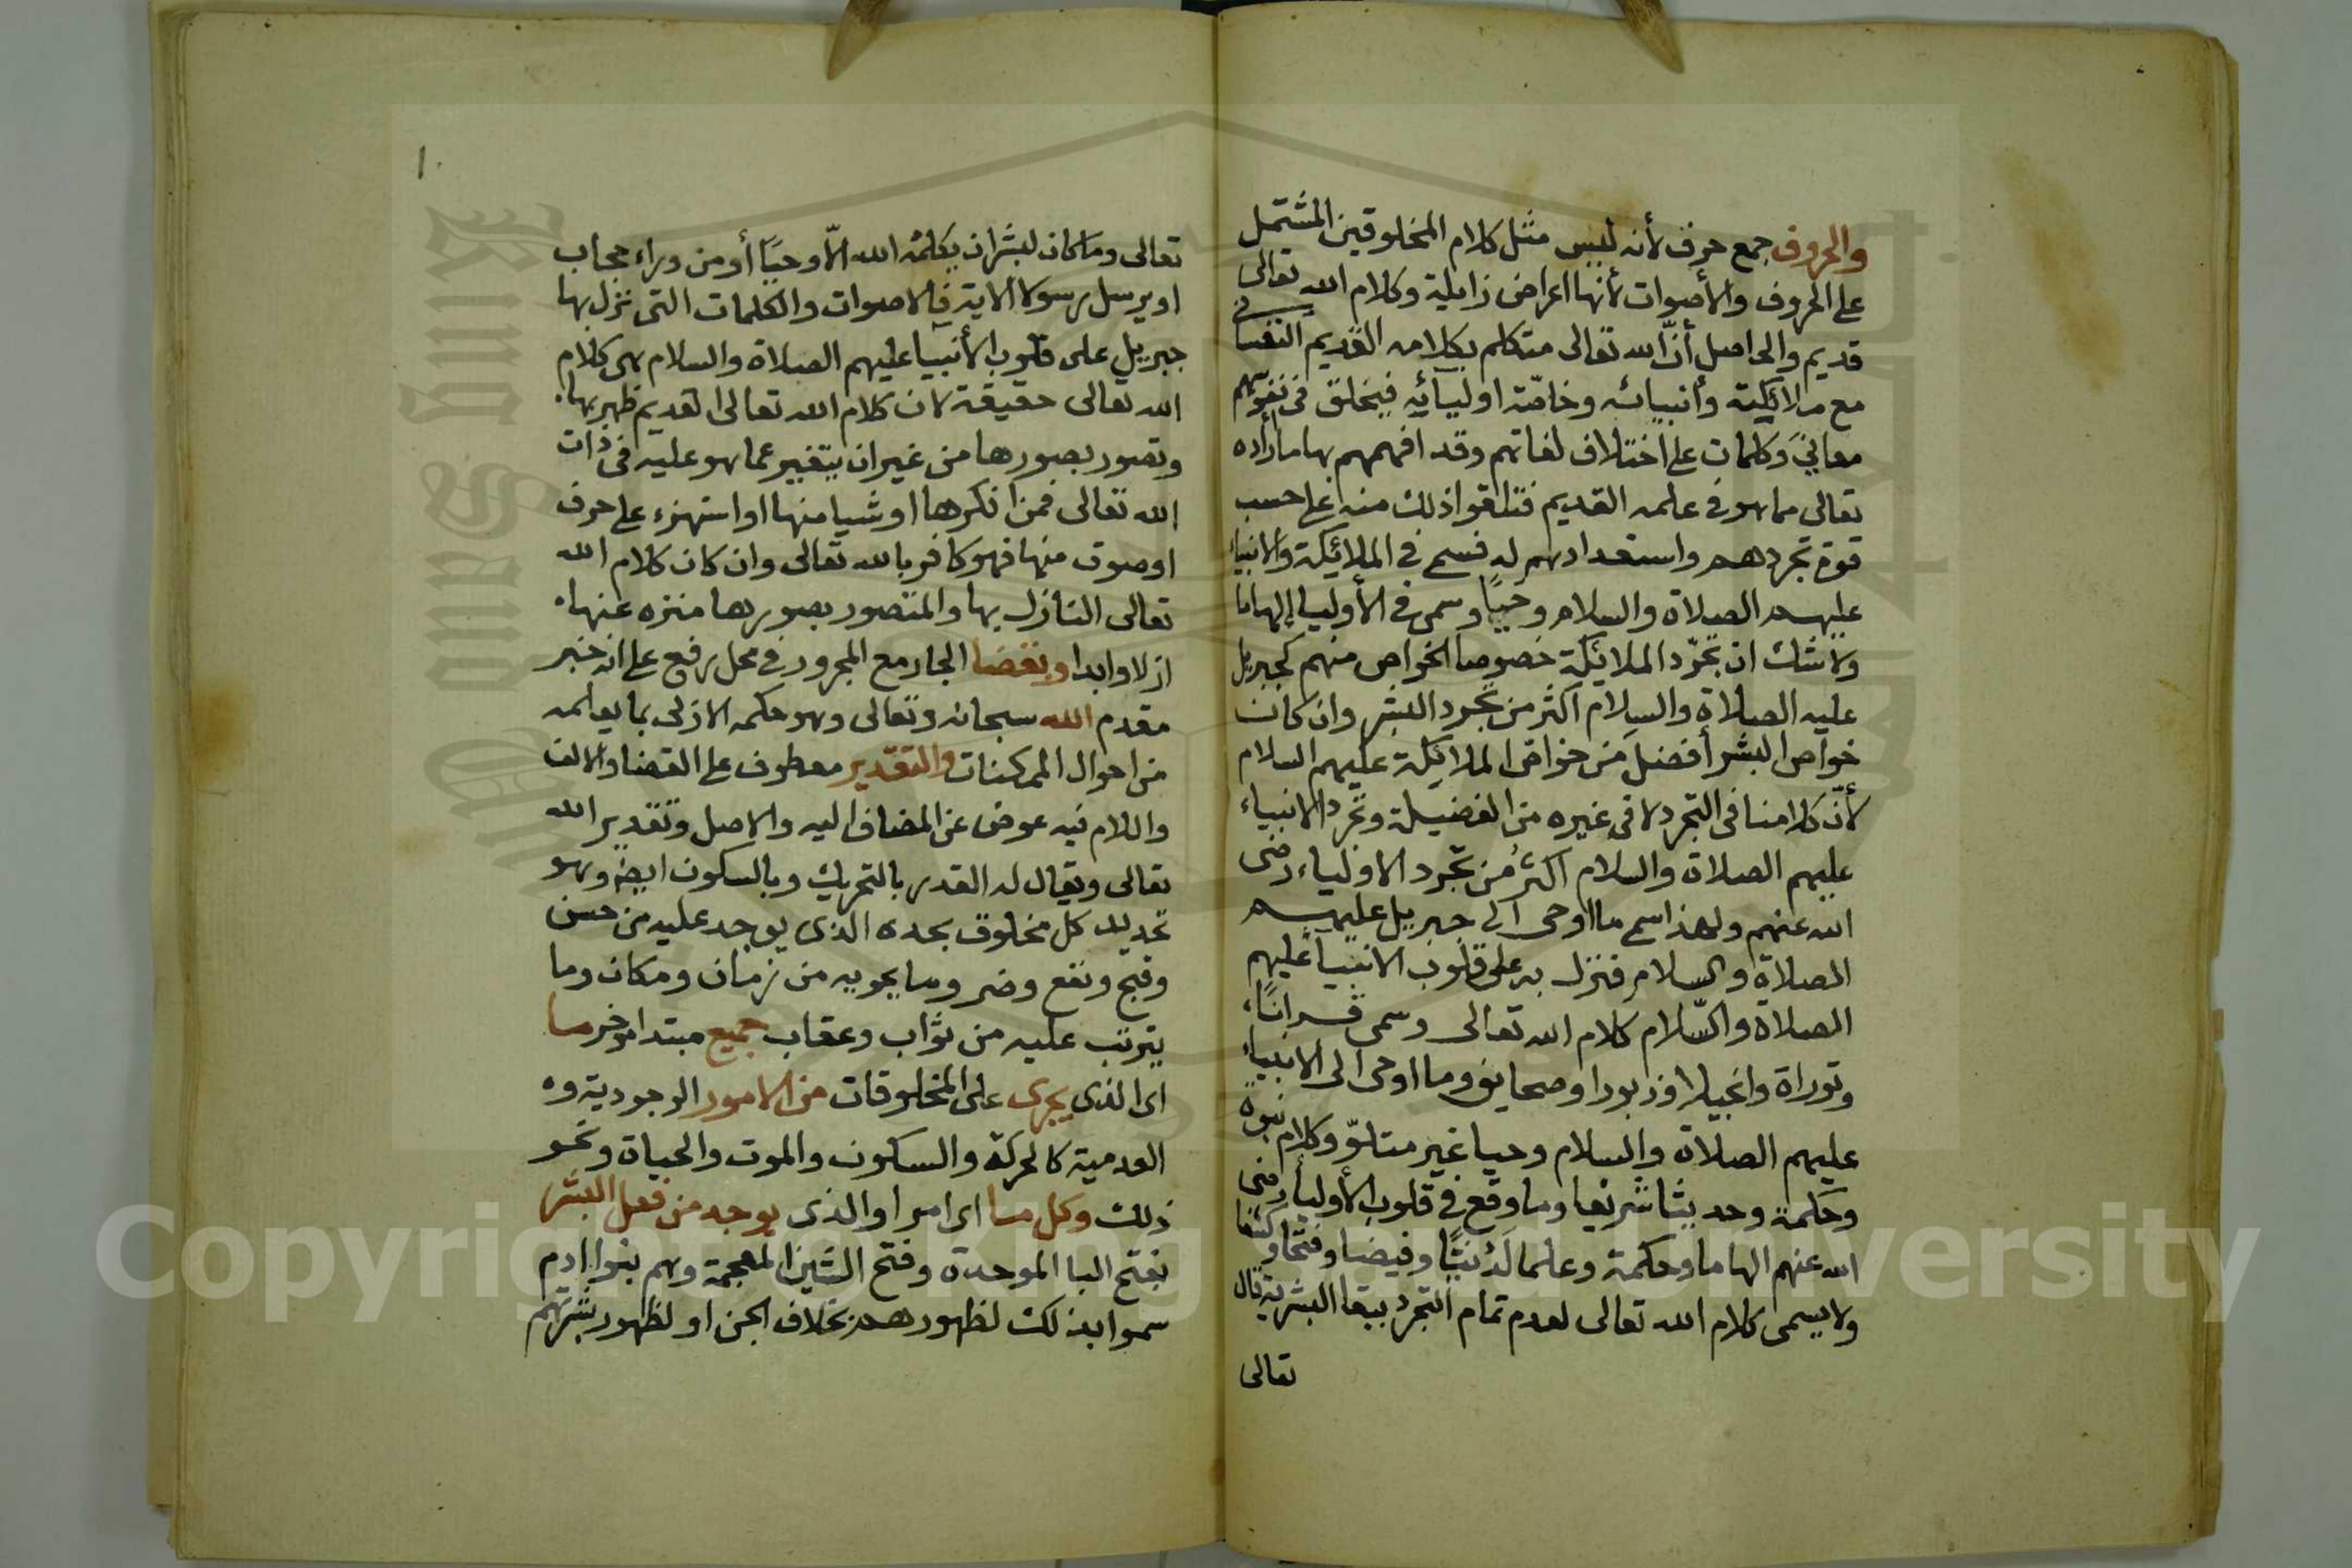 والحروف جمع حرف لأنه ليس مثل كلام المخلوقين المشتمل
على الحروف والأصوات لأنها اعراض زايلة وكلام الله تعالى
قديم والحاصل أنّ الله تعالى متكلم بكلامه القديم النفسي
مع ملائكته وأنبيائه وخاصّة اوليائه فيخلق في نفوسهم
معاني وكلمات على اختلاف لغاتهم وقد افهمهم بها ما أراده
تعالى مما هو في علمه القديم فتلقوا ذلك منه على حسب
قوة تجردهم واستعدادهم له فسمي في الملائكة والانبياء
عليهم الصلاة والسلام وحيًا وسمى في الأوليا إلهاما
ولا شك ان تجرّد الملائكة خصوصا الخواص منهم كجبريل
عليه الصلاة والسلام اكثر من تجرد البشر وان كانت
خواص البشر أفضل من خواص الملائكة عليهم السلام
لأنّ كلامنا في التجرد لا في غيره من الفضيلة وتجرد الانبياء
عليهم الصلاة والسلام اكثر من تجرد الاولياء رضى
الله عنهم ولهذا سمي ما اوحى الى جبريل عليه
الصلاة والسلام فنزل به على قلوب الانبيا عليهم
الصلاة والسّلام كلام الله تعالى وسمى قرانًا
وتوراة وانجيلا وزبورا وصحايف وما اوحى الى الانبياء
عليهم الصلاة والسلام وحيا غير متلوّ وكلام نبوة
وحكمة وحديثا شريفا وما وقع في قلوب الأوليا رضى
الله عنهم الهاما وحكمة وعلما لدنيًّا وفيضا وفتحا وكشفا
ولا يسمى كلام الله تعالى لعدم تمام التجرد ببقا البشرية قال
تعالى
١٠
تعالى وما كان لبشر ان يكلمه الله الّا وحيًا أو من وراء حجاب
او يرسل رسولا الاية فالاصوات والكلمات التى نزل بها
جبريل على قلوب الأنبيا عليهم الصلاة والسلام هى كلام
الله تعالى حقيقة لان كلام الله تعالى القديم ظهر بها
وتصور بصورها من غير ان يتغير عما هو عليه في ذات
الله تعالى فمن انكرها او شيا منها او استهزء على حرف
او صوت منها فهو كافر بالله تعالى وان كان كلام الله
تعالى النازل بها والمتصور بصورها منزه عنها
ازلا وابدا وبقضا الجار مع المجرور في محل رفع على انه خبر
مقدم الله سبحانه وتعالى وهو حكمه الازلى بما يعلمه
من احوال الممكنات والتقدير معطوف على القضا والالف
واللام فيه عوض عن المضاف اليه والاصل وتقدير الله
تعالى ويقال له القدر بالتحريك وبالسكون ايضا وهو
تحديد كل مخلوق بحده الذى يوجد عليه من حسن
وقبح ونفع وضر وما يحويه من زمان ومكان وما
يترتب عليه من ثواب وعقاب جميع مبتدا موخر ما
اى الذى يجرى على المخلوقات من الامور الوجودية و
العدمية كالحركة والسكون والموت والحياة ونحو
ذلك وكل ما اى امر او الذى يوجد من فعل البشر
بفتح البا الموحدة وفتح الشين المعجمة وهم بنوا ادم
سموا بذلك لظهورهم بخلاف الجن او لظهور بشرتهم
Copyright © King Saud University